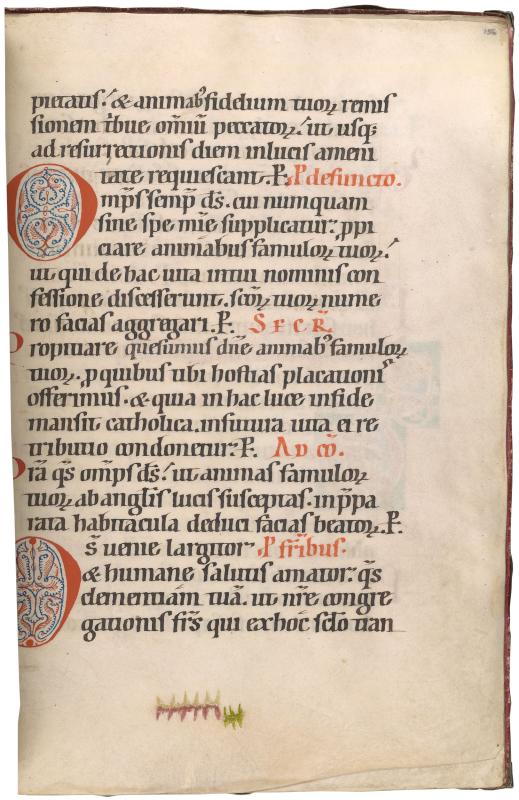 156
pietatis. & animab' fidelium tuoꝝ remis
sionem tͥbue om̄iū peccatoꝝ. ut usq;
ad resurrectionis diem in lucis ameni
tate requiescant. P̲. P̲ defuncto.
Omp̄s semp̄ d̄s. cui numquam
sine spe mīe supplicatur. ꝓpi
ciare animabus famuloꝝ tuoꝝ.
ut qui de hac uita in tui nominis con
fessione discesserunt. sc̄oꝝ tuoꝝ nume
ro facias aggregari. P̲. SECR̄
Propitiare quesumus dn̄e animab' famuloꝝ
tuoꝝ. ꝓ quibus tibi hostias placationis
offerimus. & quia in hac luce in fide
manserunt catholica. in futura uita ei re
tributio condonetur. P̲. AD CŌ.
Prā q̄s omp̄s d̄s. ut animas famuloꝝ
tuoꝝ ab anglīs lucis susceptas. in p̄pa
rata habitacula deduci facias beatoꝝ. P̲.
D̄s uenie largitor P̲ frībus.
& humane salutis amator. q̄s
clementiam tuā. ut nr̄e congre
gationis fr̄s qui ex hoc sc̄lo tran